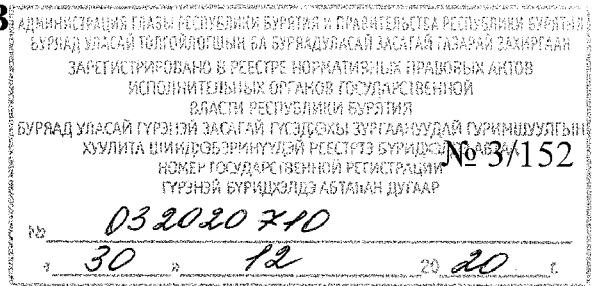 В
АДМИНИСТРАЦИЯ ГЛАВЫ РЕСПУБЛИКИ БУРЯТИЯ И ПРАВИТЕЛЬСТВА РЕСПУБЛИКИ БУРЯТИЯ
БУРЯАД УЛАСАЙ ТОЛГОЙЛОГШЫН БА БУРЯАД УЛАСАЙ ЗАСАГАЙ ГАЗАРАЙ ЗАХИРГААН
ЗАРЕГИСТРИРОВАНО В РЕЕСТРЕ НОРМАТИВНЫХ ПРАВОВЫХ АКТОВ
ИСПОЛНИТЕЛЬНЫХ ОРГАНОВ ГОСУДАРСТВЕННОЙ
ВЛАСТИ РЕСПУБЛИКИ БУРЯТИЯ
БУРЯАД УЛАСАЙ ГҮРЭНЭЙ ЗАСАГАЙ ГҮЙСЭДХЭХЫ ЗУРГААНУУДАЙ ГУРИМШУУЛГЫН
ХУУЛИТА ШИИДХЭБЭРИНҮҮДЭЙ РЕЕСТРТЭ БҮРИДХЭЛДЭ АБТАА
№ 3/152
НОМЕР ГОСУДАРСТВЕННОЙ РЕГИСТРАЦИИ
ГҮРЭНЭЙ БҮРИДХЭЛДЭ АБТАҺАН ДУГААР
№ 032020710
« 30 » 12 20 20 г.